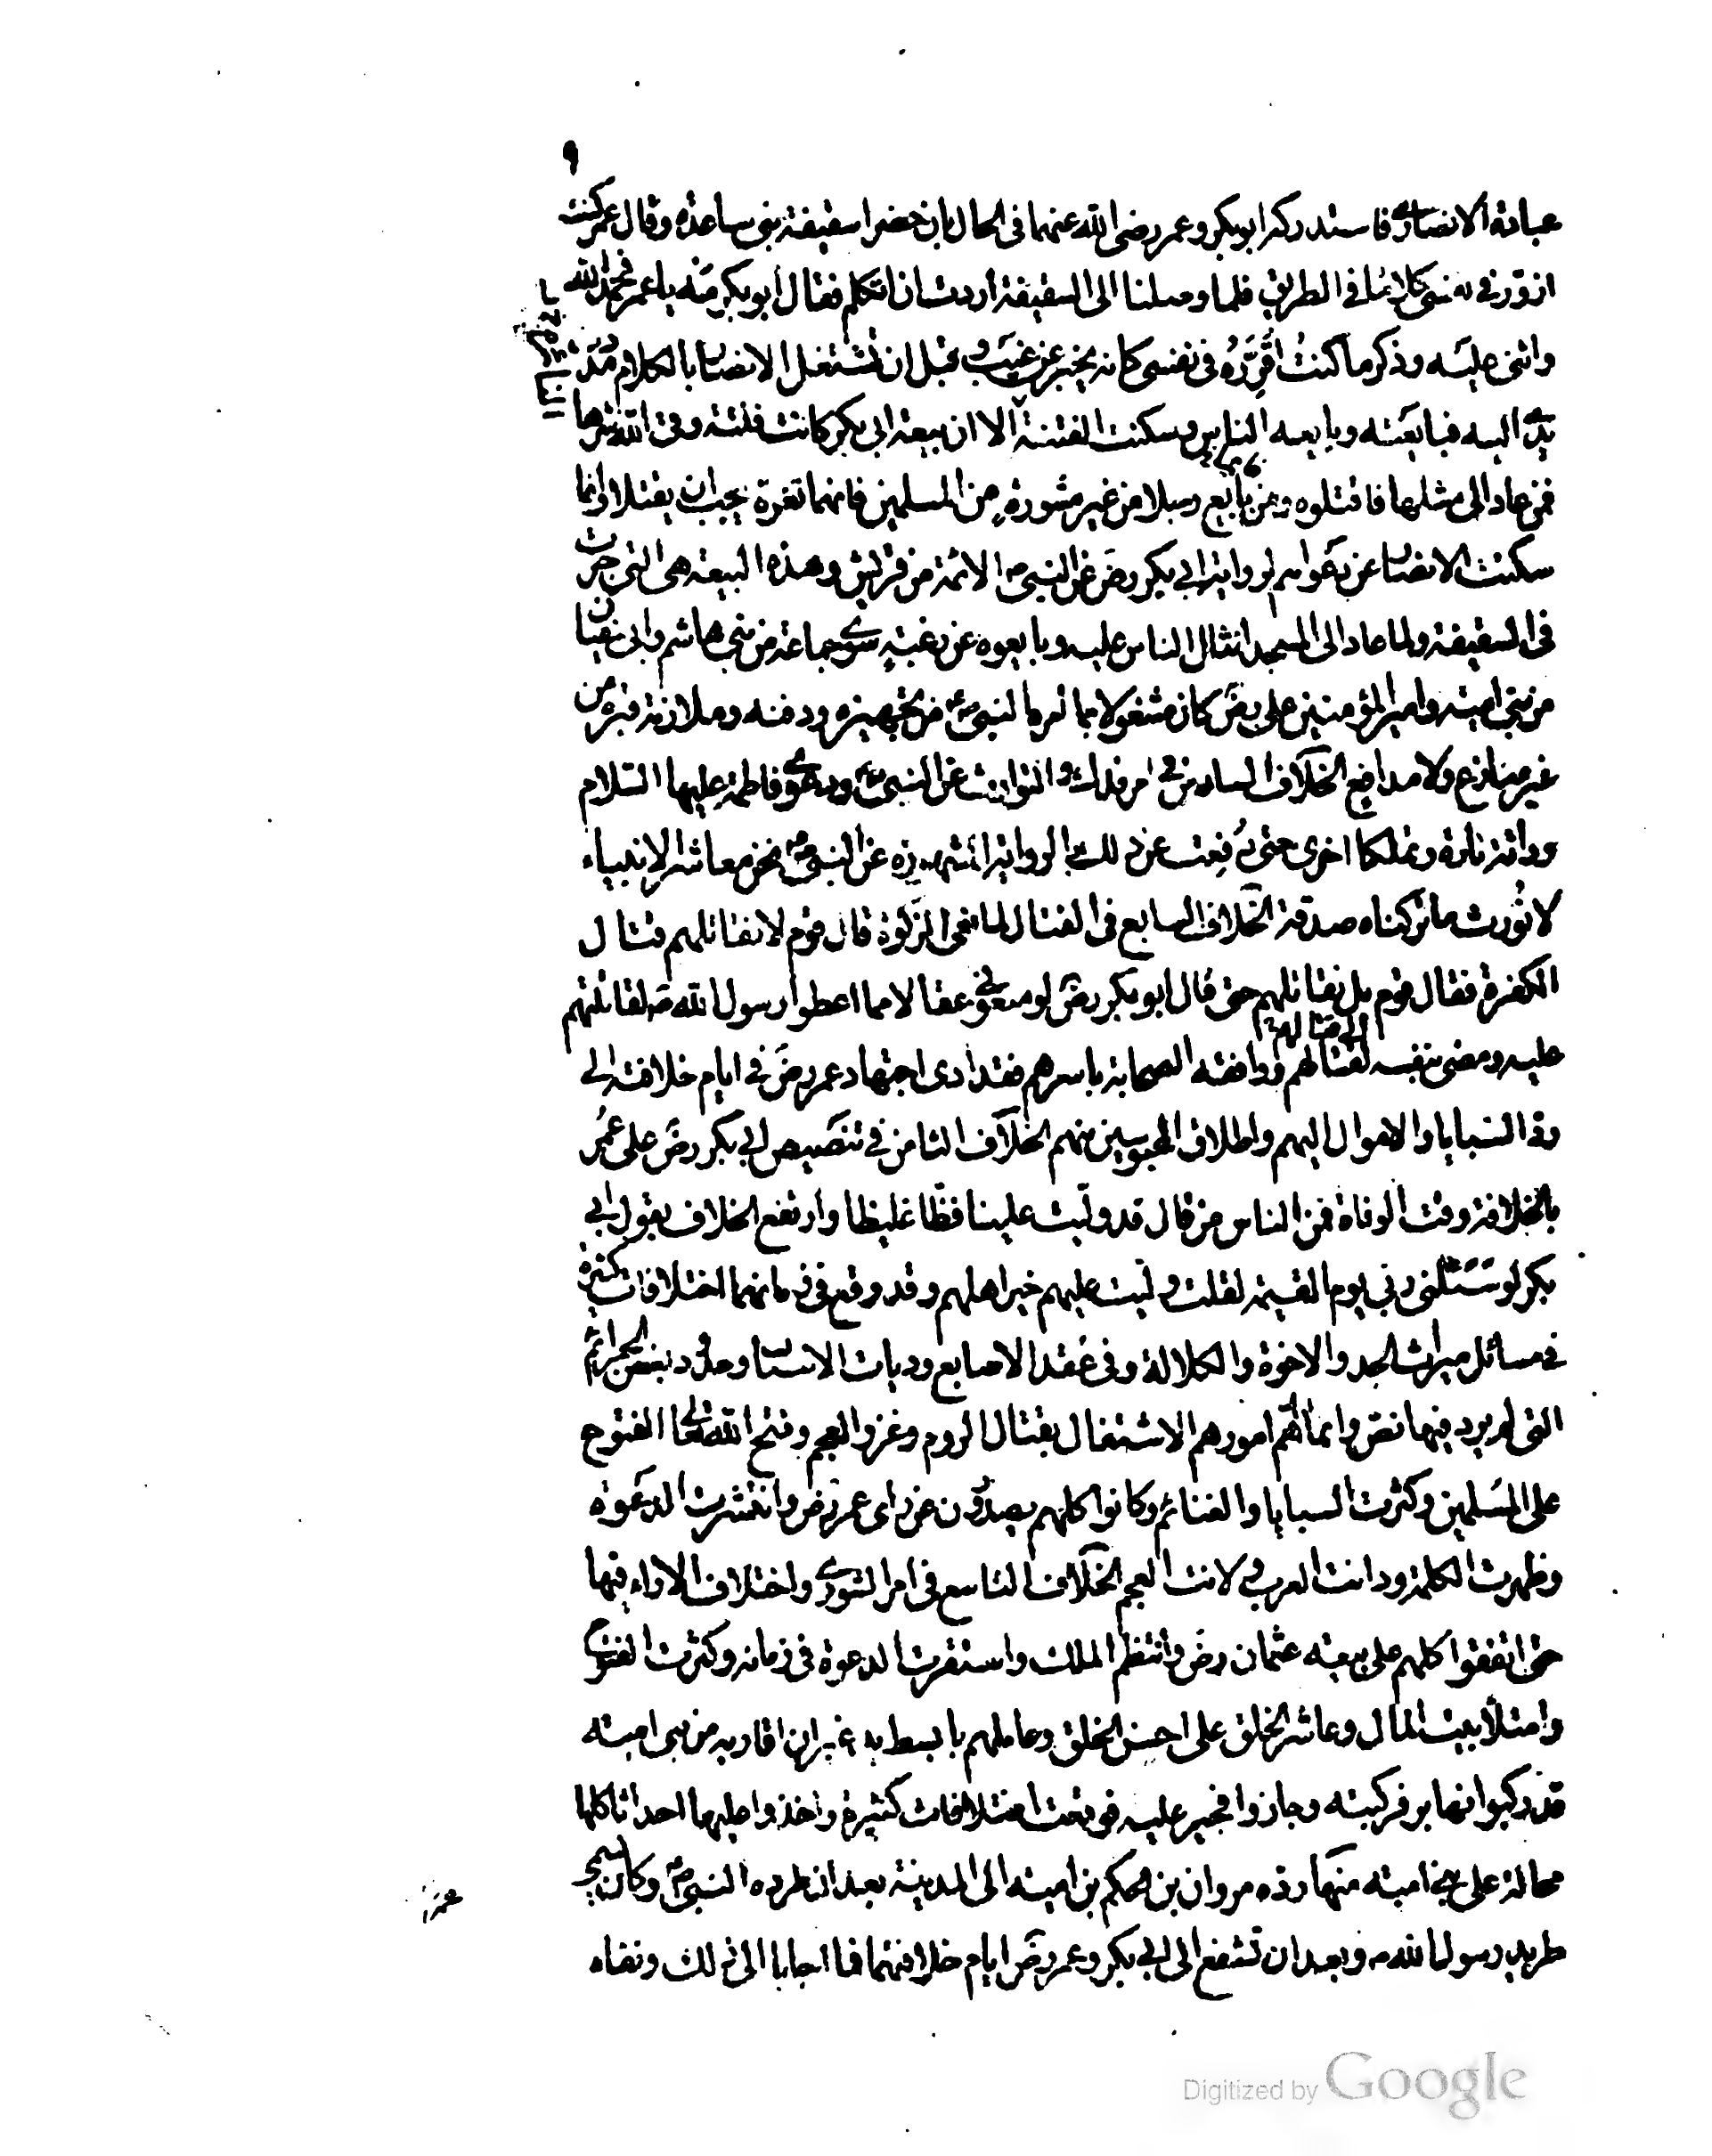 ٩
عبادة الانصارى فاستدركه ابوبكر وعمر رضى الله عنهما فى الحال بان حضرا سقيفة بنى ساعدة وقال عمر كنت
ازور فى نفسى كلاما فى الطريق فلما وصلنا الى السقيفة اردت ان اتكلم فقال ابو بكر مه يا عمر فحمد الله
واثنى عليه وذكر ما كنت اقدره فى نفسى كانه يخبر عن غيب وقبل ان تشتغل الانصار بالكلام مددت
يدى اليه فبايعته وبايعه الناس وسكنت الفتنة الا ان بيعة ابى بكر كانت فلتة وقى الله شرها
فمن عاد الى مثلها فاقتلوه ومن بايع رجلا من غير مشورة من المسلمين فانهما تغرة يجب ان يقتلا وانما
سكنت الانصار عن دعواهم لرواية ابى بكر رض عن النبى ص الائمة من قريش وهذه البيعة هى التى جرت
فى السقيفة ولما عاد الى المسجد انثال الناس عليه وبايعوه عن رغبة سوى جماعة من بنى هاشم وابى سفيان
من بنى امية وامير المؤمنين على رض كان مشغولا بما امره النبى ص من تجهيزه ودفنه وملازمة قبره من
غير منازع ولا مدافع الخلاف السادس فى امر فدك والتوارث عن النبى ص ودعوى فاطمة عليها السلام
وراثة تارة وتملكا اخرى حتى دفعت عن ذلك بالرواية المشهورة عن النبى ص نحن معاشر الانبياء
لا نورث ما تركناه صدقة الخلاف السابع فى القتال لمانعى الزكوة قال قوم لا نقاتلهم قتال
الكفرة فقال قوم بل نقاتلهم حتى قال ابو بكر رض لو منعونى عقالا مما اعطوا رسول الله ص لقاتلتهم
عليه ومضى بنفسه لقتالهم ووافقه الصحابة باسرهم فقد ادى اجتهاد عمر رض فى ايام خلافته الى
رد السبايا والاموال اليهم واطلاق المحبوسين منهم الخلاف الثامن فى تنصيص ابى بكر رض على عمر
بالخلافة وقت الوفاة فمن الناس من قال قد وليت علينا فظا غليظا وارتفع الخلاف بقول ابى
بكر لو سئلنى ربى يوم القيمة لقلت وليت عليهم خير اهلهم وقد وقع فى زمانهما اختلافات كثيرة
فى مسائل ميراث الجد والاخوة والكلالة وفى عقد الاصابع وديات الاسنان وحدود بعض الجرائم
التى لم يرد فيها نص وانما اهم امورهم الاشتغال بقتال الروم وغزو العجم وفتح الله تعالى الفتوح
على المسلمين وكثرت السبايا والغنائم وكانوا كلهم يصدرون عن راى عمر رض وانتشرت الدعوة
وظهرت الكلمة ودانت العرب ولانت العجم الخلاف التاسع فى امر الشورى واختلاف الاراء فيها
حتى اتفقوا كلهم على بيعة عثمان رض وانتظم الملك واستقرت الدعوة فى زمانه وكثرت الفتوح
وامتلأ بيت المال وعاشر الخلق على احسن الخلق وعاملهم بابسط يد غير ان اقاربه من بنى امية
قد ركبوا نهابر فركبته وجاروا فجير عليه فوقعت اختلافات كثيرة واخذوا عليها احداثا كلها
محالة على بنى امية منها رده مروان بن الحكم بن امية الى المدينة بعد ان طرده النبى ص وكان يسمى
طريد رسول الله ص وبعد ان تشفع الى ابى بكر وعمر رض ايام خلافتهما فما اجابا الى ذلك ونفاه
عمر
Digitized by Google